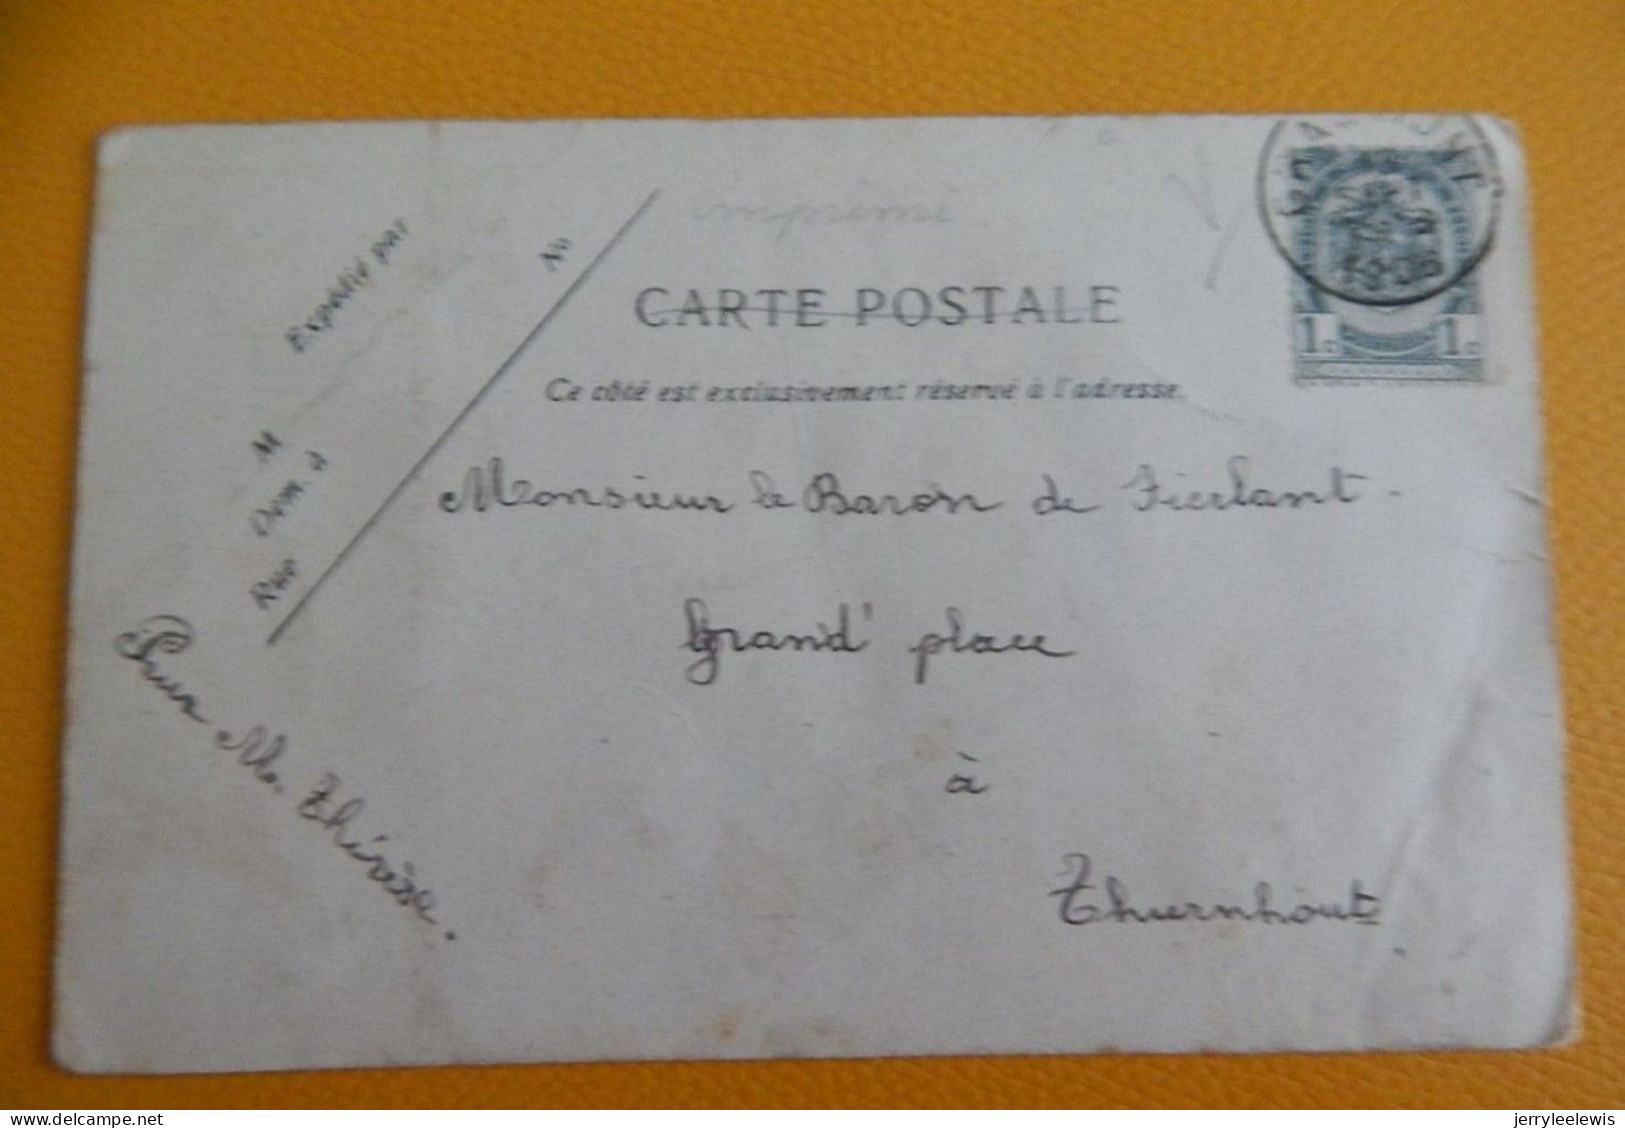 imprimé
CARTE POSTALE
Ce côté est exclusivement réservé à l'adresse.
Expédié par
No
M
Dom. à
Rue
Monsieur le Baron de Fierlant.
Grand' place
à
Thurnhout
Pour M. Thérèse.
1c 1c
delcampe.net
jerryleelewis